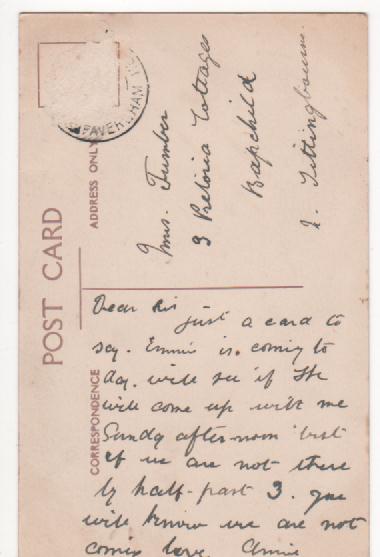 POST CARD
ADDRESS ONLY
FAVERSHAM
Mrs. Tumber
3 Pretoria Cottages
Bapchild
Sittingbourne.
CORRESPONDENCE
Dear Sis
just a card to
say. Emmie is. coming to
day. will see if She
will come up with me
Sunday afternoon but
if we are not there
by half-past 3. you
will know we are not
coming love. Annie